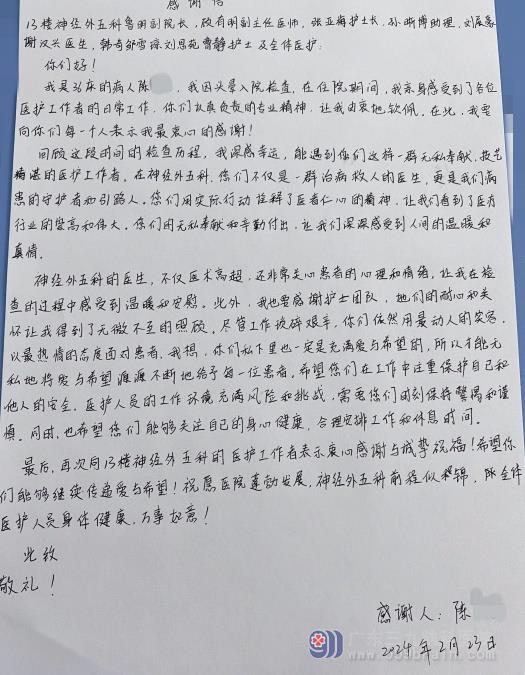 感谢信
13楼神经外五科鲁明副院长，殷有明副主任医师，张亚梅护士长，孙晰博助理，刘辰
谢汉兴医生，韩奇邹雪琼刘思苑曹静护士及全体医护：
你们好！
我是53床的病人陈 ，我因头晕入院检查，在住院期间，我亲身感受到了各位
医护工作者的日常工作，你们认真负责的专业精神，让我由衷地钦佩，在此，我要
向你们每一个人表示我最衷心的感谢！
回顾这段时间的检查历程，我深感幸运，能遇到你们这样一群无私奉献、技艺
精湛的医护工作者。在神经外五科，您们不仅是一群治病救人的医生，更是我们病
患的守护者和引路人。您们用实际行动诠释了医者仁心的精神，让我们看到了医疗
行业的崇高和伟大。您们的无私奉献和辛勤付出，让我们深深感受到人间的温暖和
真情。
神经外五科的医生，不仅医术高超，还非常关心患者的心理和情绪，让我在检
查的过程中感受到温暖和安慰。此外，我也要感谢护士团队，她们的耐心和关
怀让我得到了无微不至的照顾，尽管工作琐碎艰辛，你们依然用最动人的笑容，
以最热情的态度面对患者，我想，你们私下里也一定是充满爱与希望的，所以才能无
私地将爱与希望源源不断地给予每一位患者。希望您们在工作中注重保护自己和
他人的安全。医护人员的工作环境充满风险和挑战，需要您们时刻保持警惕和谨
慎。同时，也希望您们能够关注自己的身心健康，合理安排工作和休息时间。
最后，再次向13楼神经外五科的医护工作者表示衷心感谢与诚挚祝福！希望你
们能够继续传递爱与希望！祝愿医院蓬勃发展，神经外五科前程似锦，愿全体
医护人员身体健康，万事如意！
此致
敬礼！
感谢人：陈
2024年2月23日